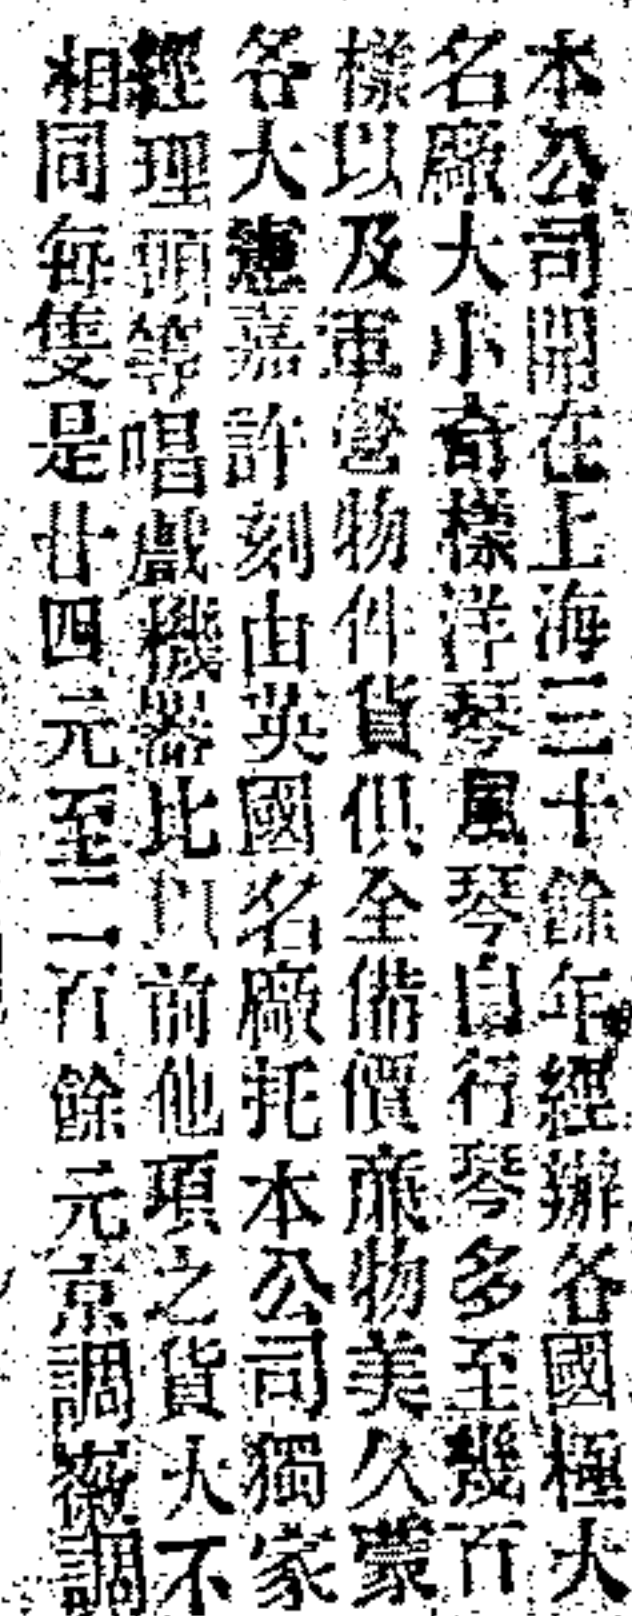 本公司開在上海三十餘年經辦各國極大
名廠大小奇樣洋琴風琴自行琴多至幾百
樣以及軍營物件貨俱全備價廉物美久蒙
各大憲嘉許刻由英國名廠托本公司獨家
經理頭等唱戲機器比以前他項之貨大不
相同每隻是廿四元至二百餘元京調徽調